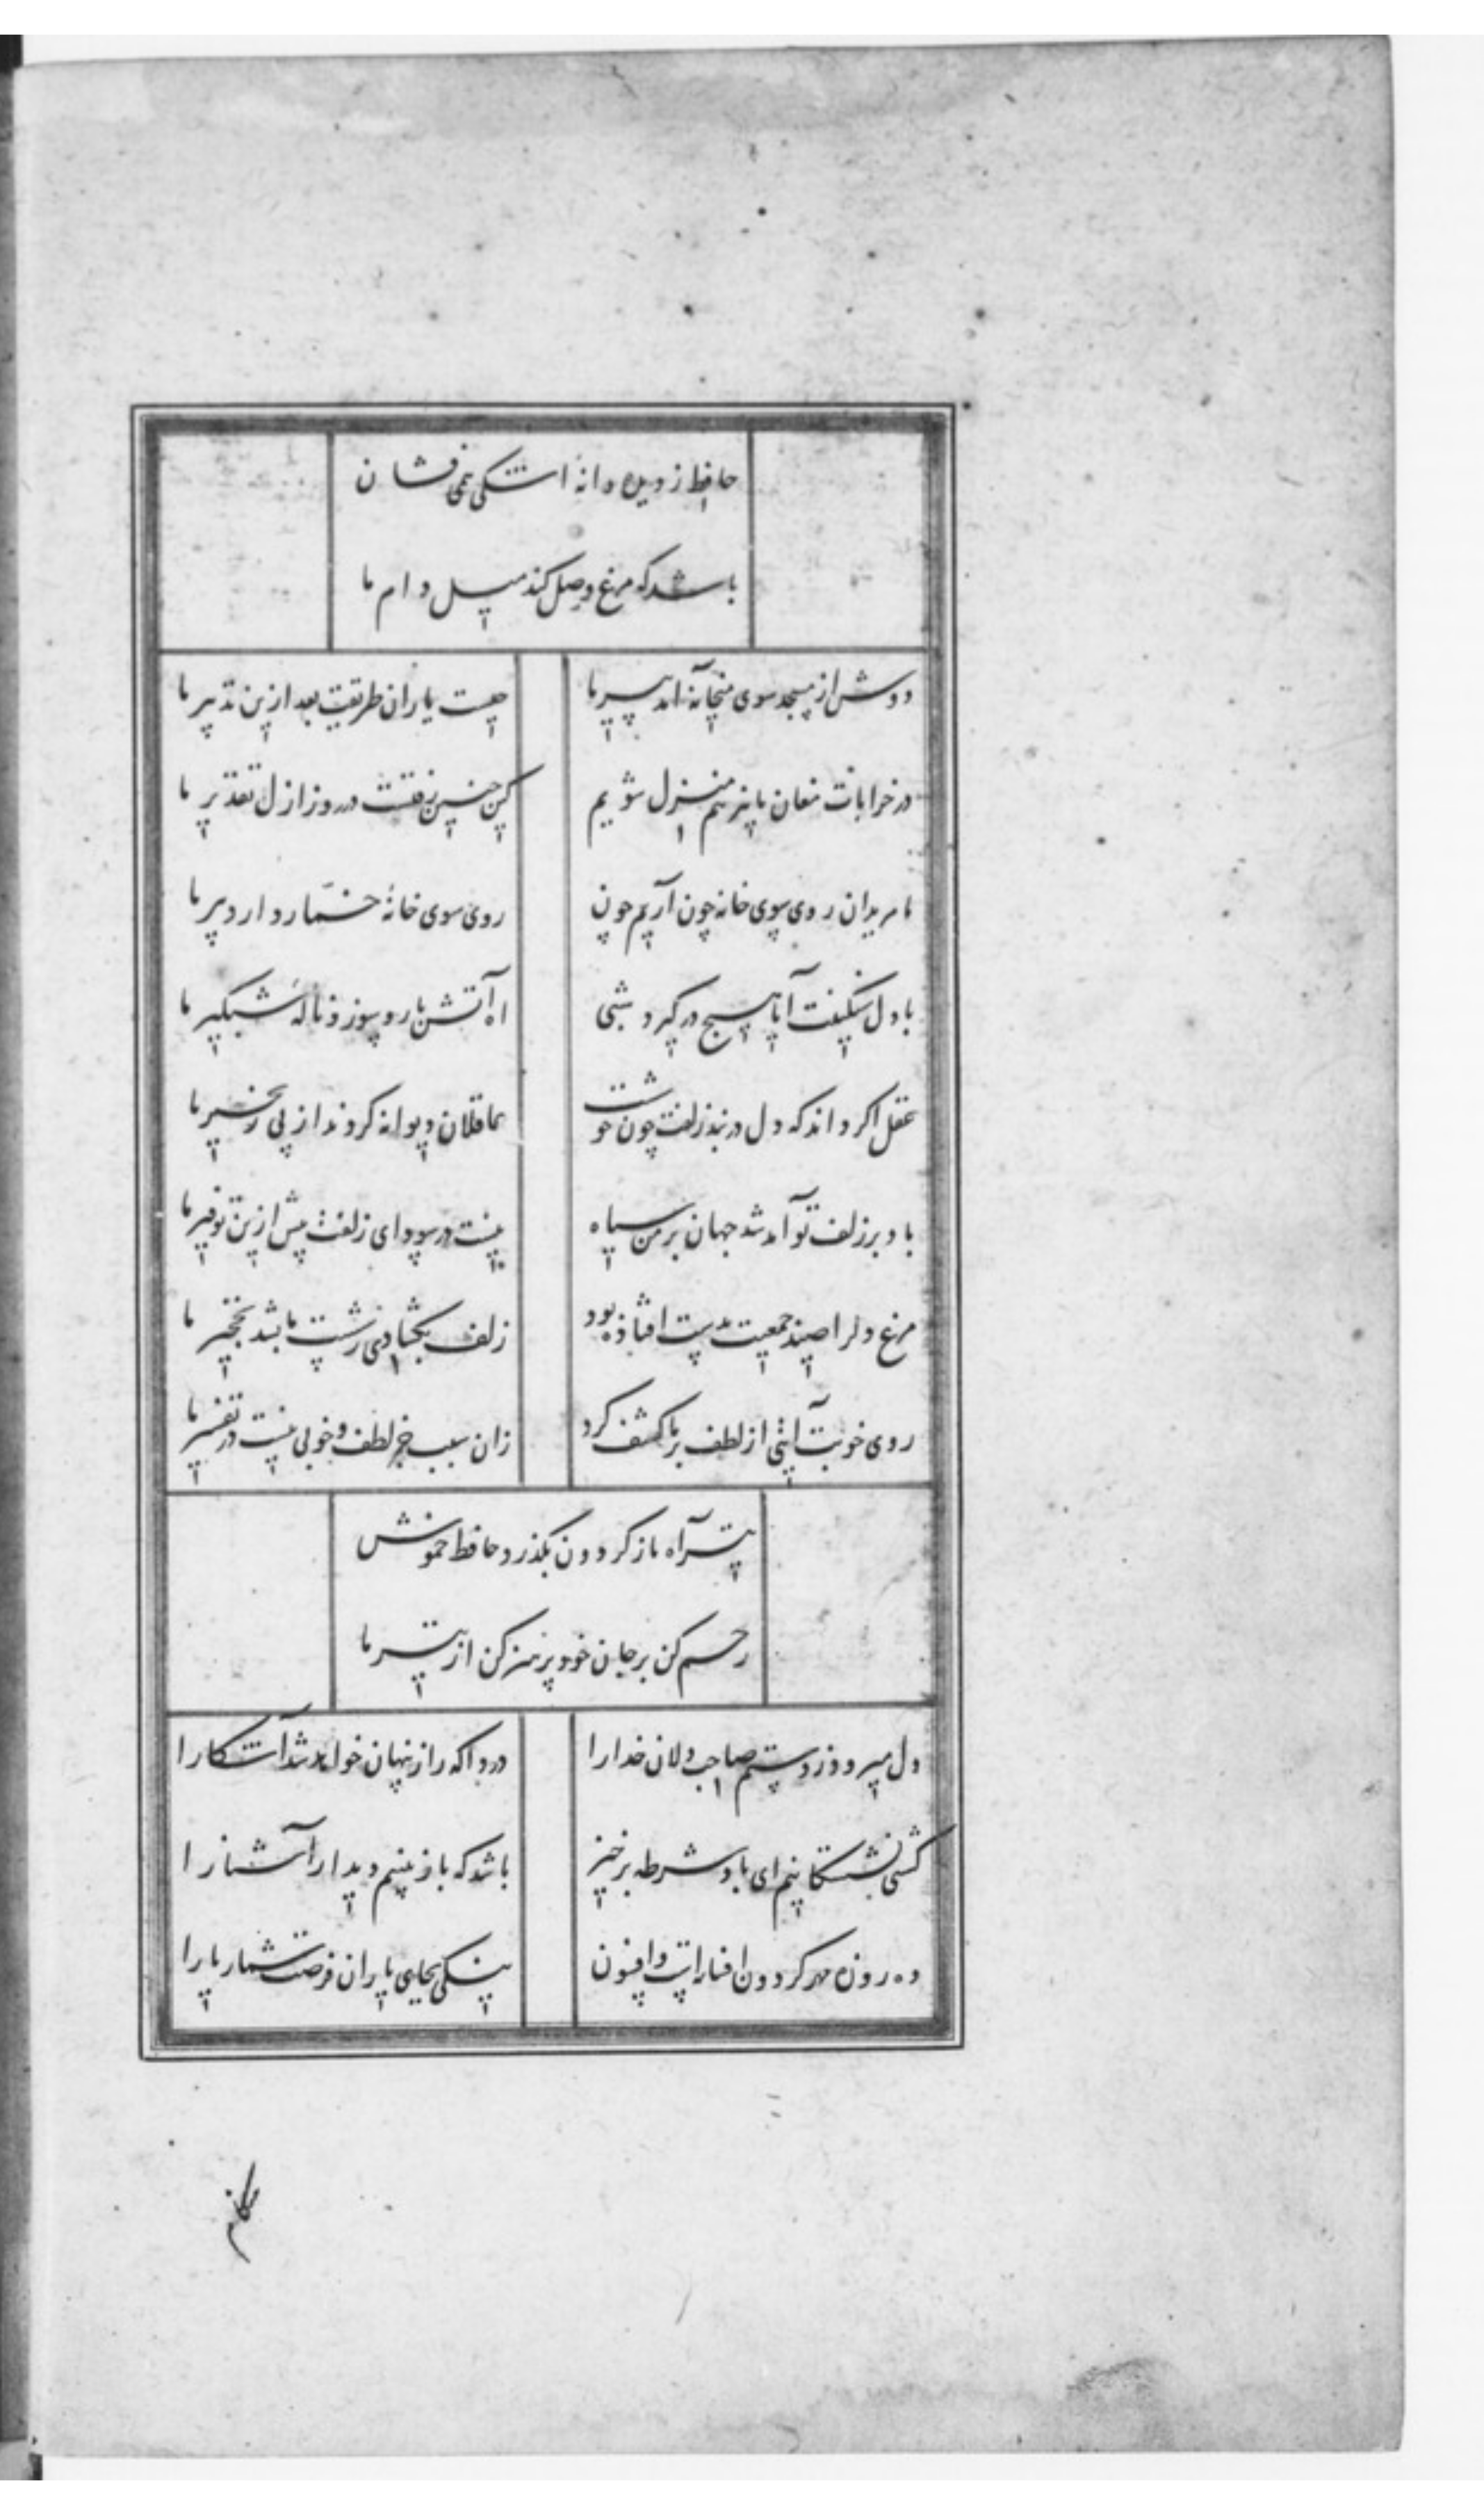 حافظ ز دیده دانهٔ اشکی همی فشان
باشد که مرغ وصل کند میل دام ما
دوش از مسجد سوی میخانه آمد پیر ما
چیست یاران طریقت بعد ازین تدبیر ما
در خرابات مغان ما نیز هم منزل شویم
کین چنین رفتست در روز ازل تقدیر ما
ما مریدان روی سوی خانه چون آریم چون
روی سوی خانهٔ خمار دارد پیر ما
با دل سنگینت آیا هیچ درگیرد شبی
آه آتش بار و سوز و نالهٔ شبگیر ما
عقل اگر داند که دل در بند زلفت چون خوشست
عاقلان دیوانه گردند از پی زنجیر ما
باد بر زلف تو آمد شد جهان بر من سیاه
نیست در سودای زلفت بیش ازین توفیر ما
مرغ دلرا صید جمعیت بدست افتاده بود
زلف بگشادی ز شست ما بشد نخجیر ما
روی خوبت آیتی از لطف بر ما کشف کرد
زان سبب جز لطف و خوبی نیست در تفسیر ما
تیر آه ما ز گردون بگذرد حافظ خموش
رحم کن بر جان خود پرهیز کن از تیر ما
دل میرود ز دستم صاحب دلان خدا را
دردا که راز پنهان خواهد شد آشکارا
کشتی نشستگانیم ای باد شرطه برخیز
باشد که باز بینیم دیدار آشنا را
ده روزه مهر گردون افسانه است و افسون
نیکی بجای یاران فرصت شمار یارا